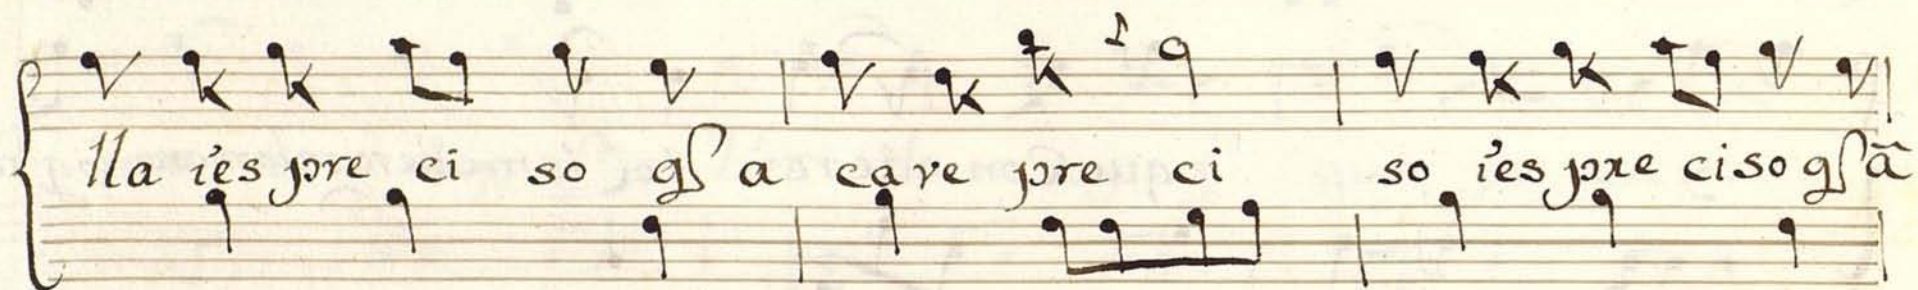 lla ies pre ci so qſ a cave pre ci so ies pre ciso qſ ā